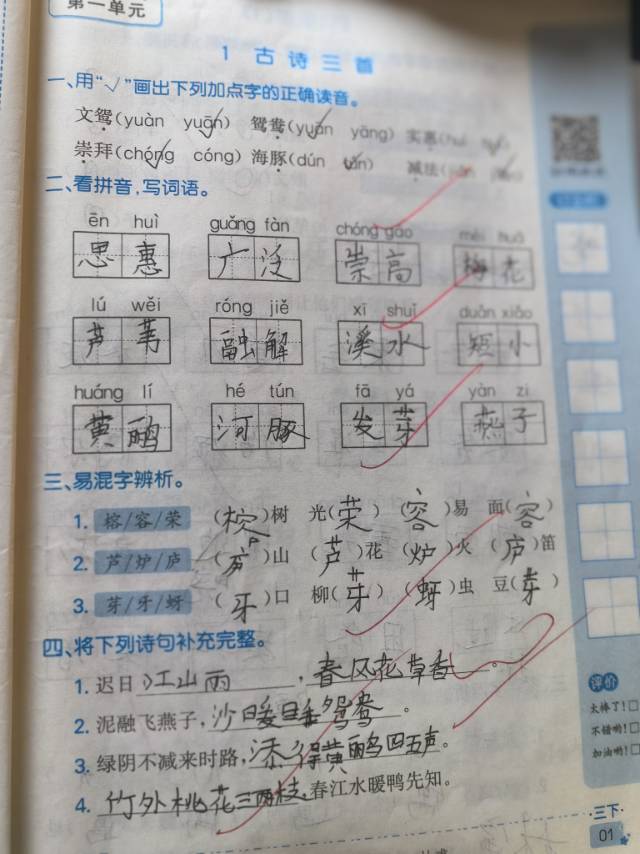 第一单元
1 古诗三首
一、用“√”画出下列加点字的正确读音。
文鸳(yuàn yuān) 鸳鸯(yuān yāng) 实惠
崇拜(chóng cóng) 海豚(dún tún) 减法
二、看拼音,写词语。
ēn huì guǎng fàn chóng gāo méi huā
思惠 广泛 崇高 梅花
lú wěi róng jiě xī shuǐ duǎn xiǎo
芦苇 融解 溪水 短小
huáng lí hé tún fā yá yàn zi
黄鹂 河豚 发芽 燕子
三、易混字辨析。
1. 榕/容/荣 (榕)树 光(荣) (容)易 面(容)
2. 芦/炉/庐 (庐)山 (芦)花 (炉)火 (芦)笛
3. 芽/牙/蚜 (牙)口 柳(芽) (蚜)虫 豆(芽)
四、将下列诗句补充完整。
1. 迟日江山雨,春风花草香。
2. 泥融飞燕子,沙暖睡鸳鸯。
3. 绿阴不减来时路,添得黄鹂四五声。
4. 竹外桃花三两枝,春江水暖鸭先知。
评价
太棒了!
不错哟!
加油哟!
三下
01